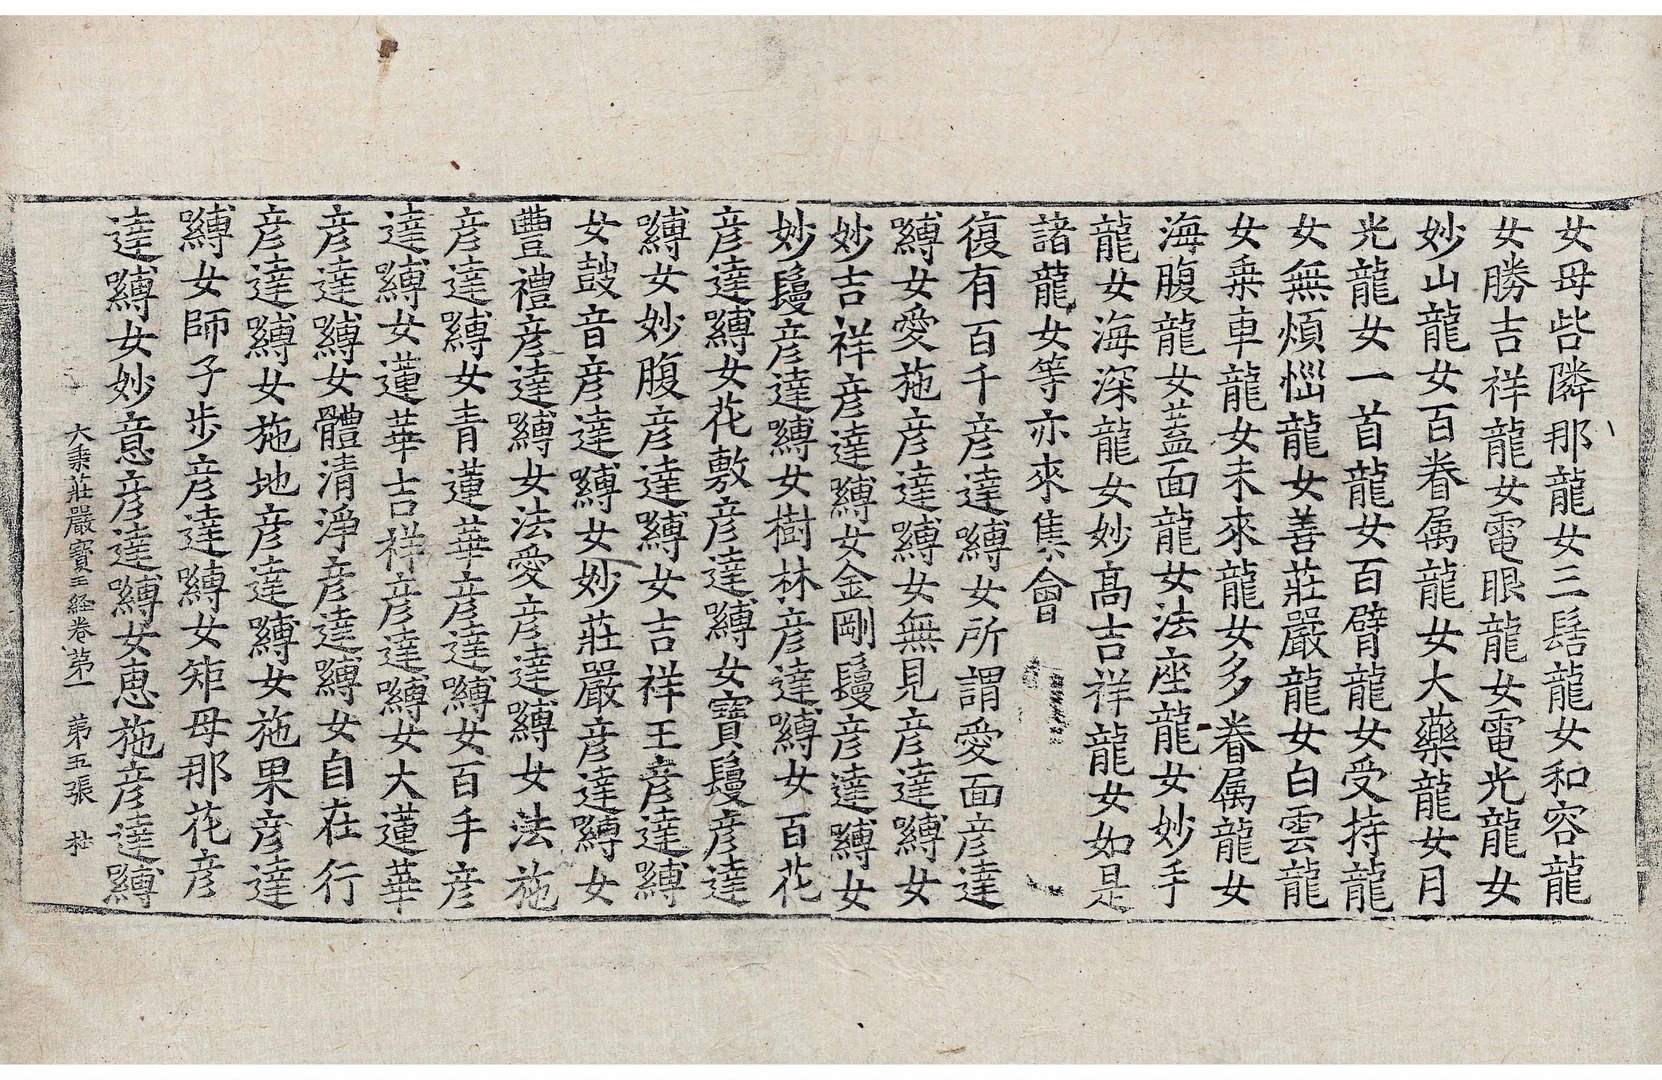 女母呰隣那龍女三髻龍女和容龍
女勝吉祥龍女電眼龍女電光龍女
妙山龍女百眷属龍女大藥龍女月
光龍女一首龍女百臂龍女受持龍
女無煩惱龍女善莊嚴龍女白雲龍
女乗車龍女未來龍女多眷属龍女
海腹龍女蓋面龍女法座龍女妙手
龍女海深龍女妙高吉祥龍女如是
諸龍女等亦來集會
復有百千彦達嚩女所謂愛面彦達
嚩女愛施彦達嚩女無見彦達嚩女
妙吉祥彦達嚩女金剛鬘彦達嚩女
妙鬘彦達嚩女樹林彦達嚩女百花
彦達嚩女花敷彦達嚩女寶鬘彦達
嚩女妙腹彦達嚩女吉祥王彦達嚩
女鼓音彦達嚩女妙莊嚴彦達嚩女
豊禮彦達嚩女法愛彦達嚩女法施
彦達嚩女青蓮華彦達嚩女百手彦
達嚩女蓮華吉祥彦達嚩女大蓮華
彦達嚩女體清淨彦達嚩女自在行
彦達嚩女施地彦達嚩女施果彦達
嚩女師子步彦達嚩女矩母那花彦
達嚩女妙意彦達嚩女惠施彦達嚩
大乗莊嚴寶王経卷第一 第五張 杜